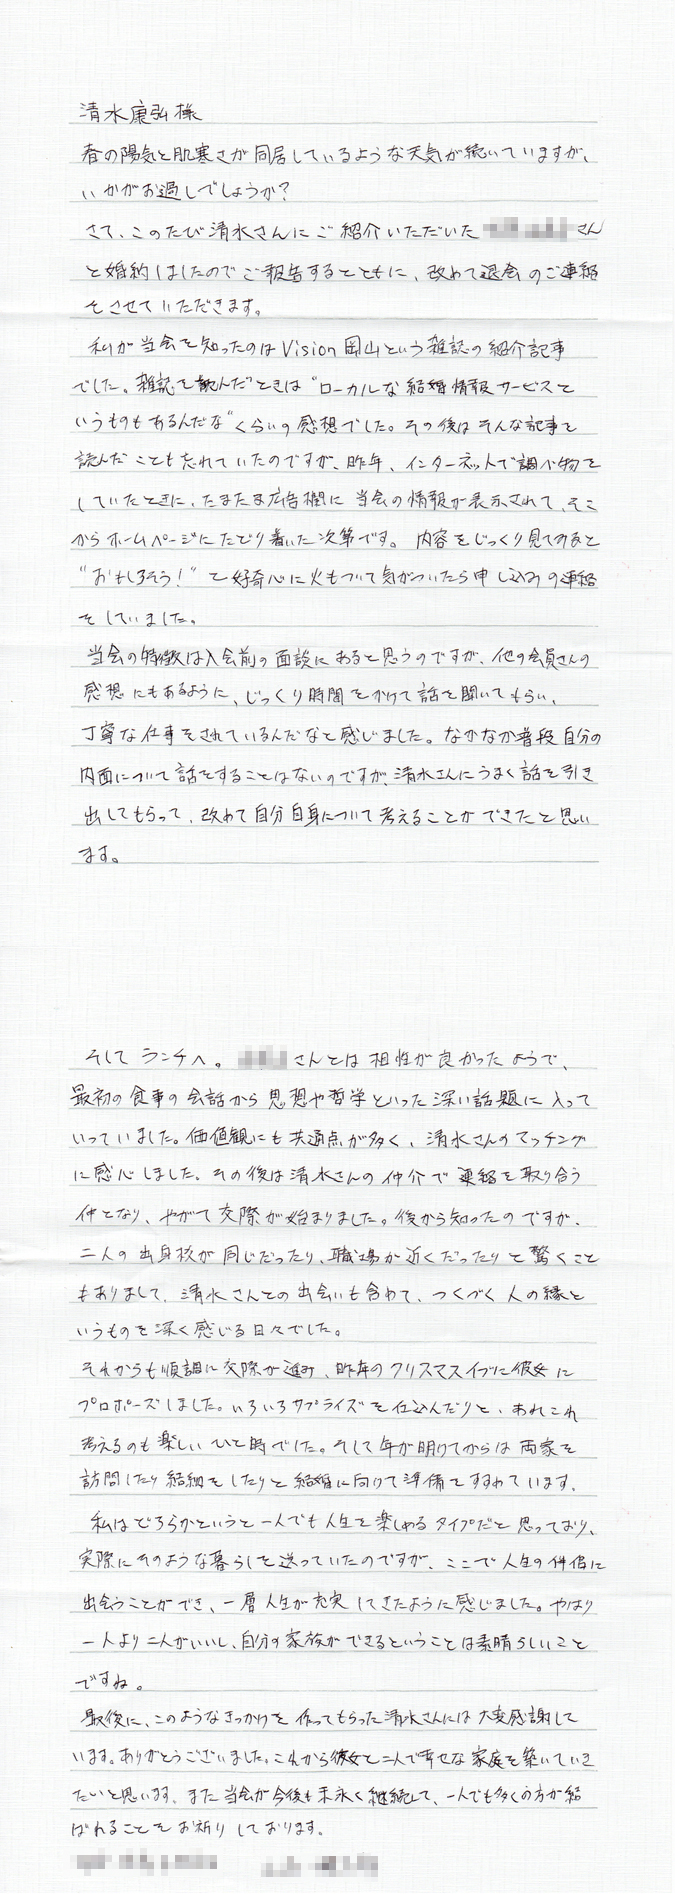 清水康弘様
春の陽気と肌寒さが同居しているような天気が続いていますが、
いかがお過しでしょうか?
さて、このたび清水さんにご紹介いただいた さん
と婚約しましたのでご報告するとともに、改めて退会のご連絡
をさせていただきます。
私が当会を知ったのはVision岡山という雑誌の紹介記事
でした。雑誌を読んだときは"ローカルな結婚情報サービスと
いうものもあるんだな"くらいの感想でした。その後はそんな記事を
読んだことも忘れていたのですが、昨年、インターネットで調べ物を
していたときに、たまたま広告欄に当会の情報が表示されて、そこ
からホームページにたどり着いた次第です。内容をじっくり見てのあと
"おもしろそう!"と好奇心に火もついて気がついたら申し込みの連絡
をしていました。
当会の特徴は入会前の面談にあると思うのですが、他の会員さんの
感想にもあるように、じっくり時間をかけて話を聞いてもらい、
丁寧な仕事をされているんだなと感じました。なかなか普段自分の
内面について話をすることはないのですが、清水さんにうまく話を引き
出してもらって、改めて自分自身について考えることができたと思い
ます。
そしてランチへ。 さんとは相性が良かったようで、
最初の食事の会話から思想や哲学といった深い話題に入って
いっていました。価値観にも共通点が多く、清水さんのマッチング
に感心しました。その後は清水さんの仲介で連絡を取り合う
仲となり、やがて交際が始まりました。後から知ったのですが、
二人の出身校が同じだったり、職場が近くだったりと驚くこと
もありまして、清水さんとの出会いも含めて、つくづく人の縁と
いうものを深く感じる日々でした。
それからも順調に交際が進み、昨年のクリスマスイブに彼女に
プロポーズしました。いろいろサプライズを仕込んだりと、あれこれ
考えるのも楽しいひと時でした。そして年が明けてからは両家を
訪問したり結納をしたりと結婚に向けて準備をすすめています。
私はどちらかというと一人でも人生を楽しめるタイプだと思っており、
実際にそのような暮らしを送っていたのですが、ここで人生の伴侶に
出会うことができ、一層人生が充実してきたように感じました。やはり
一人より二人がいいし、自分の家族ができるということは素晴らしいこと
ですね。
最後に、このようなきっかけを作ってもらった清水さんには大変感謝して
います。ありがとうございました。これから彼女と二人で幸せな家庭を築いていき
たいと思います。また当会が今後も末永く継続して、一人でも多くの方が結
ばれることをお祈りしております。